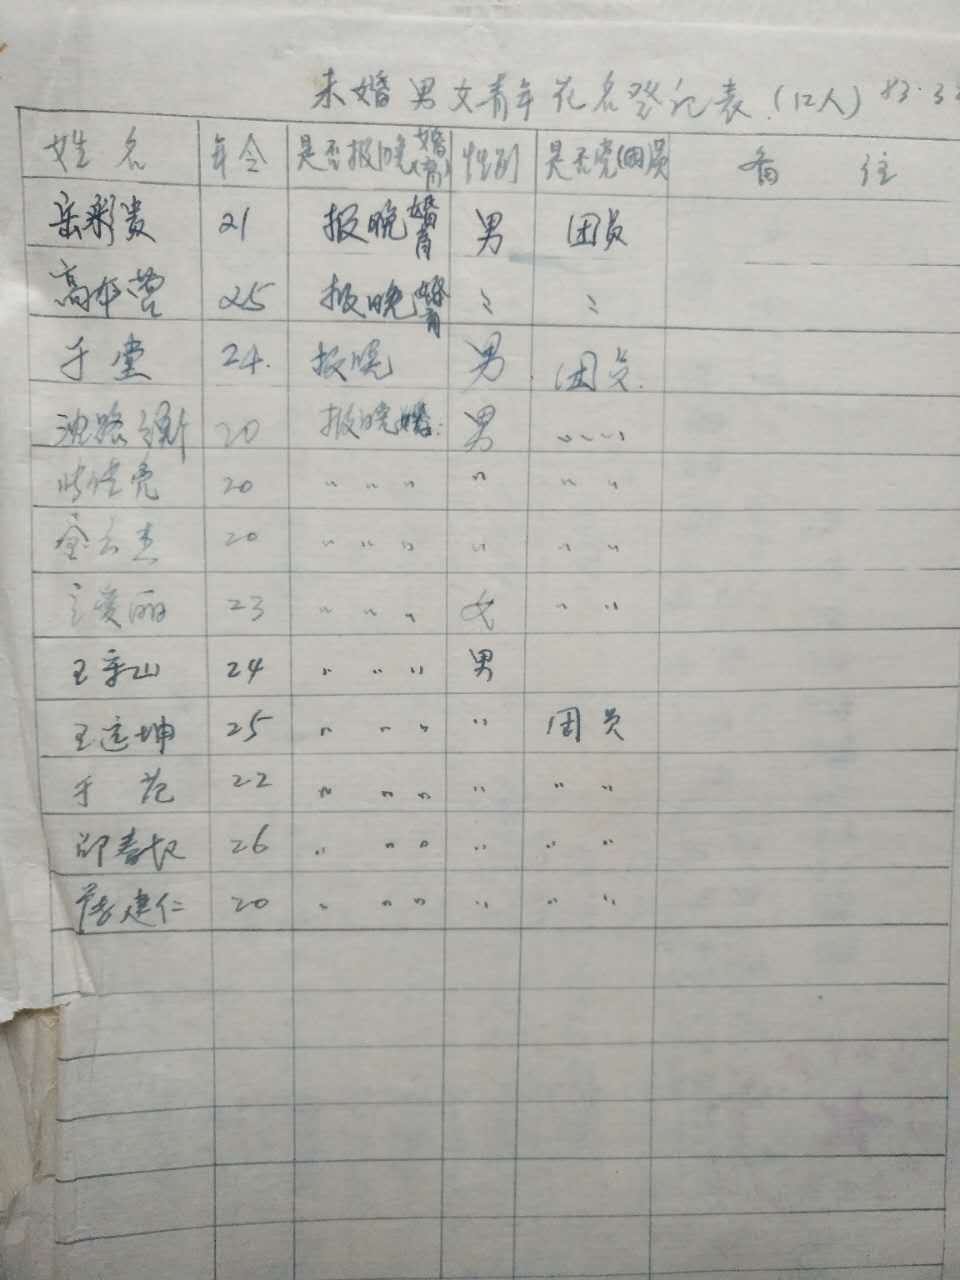 未婚男女青年花名登记表(12人) 83.3
姓名 年令 是否报晚婚(育) 性别 是否党(团)员 备注
岳彩贵 21 报晚婚育 男 团员
高华营 25 报晚婚育 〃 〃
于堂 24. 报晚 男 团员.
20 报晚婚: 男 〃 〃
20 〃 〃 〃 〃 〃 〃
20 〃 〃 〃 〃 〃 〃
爱丽 23 〃 〃 〃 女 〃 〃
王 山 24 〃 〃 〃 男
王 坤 25 〃 〃 〃 〃 团员
于范 22 〃 〃 〃 〃 〃 〃
邵春 26 〃 〃 〃 〃 〃 〃
建仁 20 〃 〃 〃 〃 〃 〃